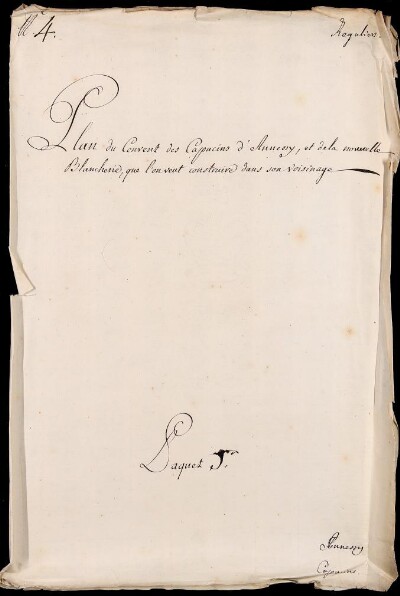 N° 4.
Reguliers
Plan du Couvent des Capucins d'Annecy, et de la nouvelle
Blancherie, que l'on veut construire dans son voisinage
Paquet 5.
Annecy
Capucins.